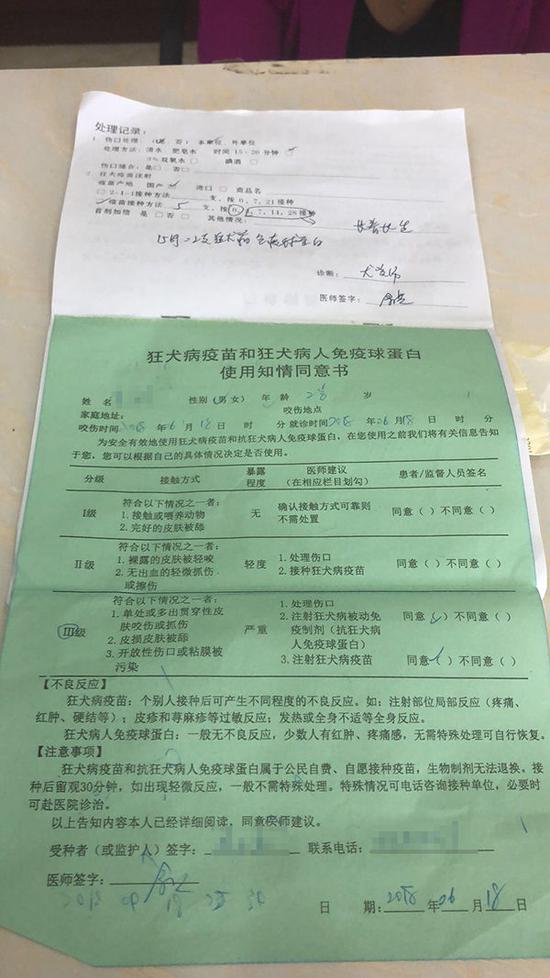 处理记录：
1 伤口处理：（是 否）本单位、外单位
处理方法：清水 肥皂水 时间15-20分钟
3%双氧水 □ 碘酒 □
伤口缝合：是□ 否□
2 狂犬疫苗注射
疫苗产地 国产 进口 □ 商品名
□2-1-1接种方法 支，按0、7、21接种
疫苗接种方法 5 支，按0、 7、14、28接种
首剂加倍 是□否□ 其他情况：
诊断：
医师签字：
狂犬病疫苗和狂犬病人免疫球蛋白
使用知情同意书
姓名 性别（男女） 年龄 岁
家庭地址： 咬伤地点
咬伤时间 2018年 06月18日 时 分 就诊时间 2018年06月18日 时 分
为安全有效地使用狂犬病疫苗和抗狂犬病人免疫球蛋白，在您使用之前我们将有关信息告知
于您，您可以根据自己的具体情况决定是否使用。
分级 接触方式 暴露程度 医师建议（在相应栏目划勾） 患者/监督人员签名
符合以下情况之一者：
I级 1. 接触或喂养动物 无 确认接触方式可靠则 同意（ ）不同意（ ）
2. 完好的皮肤被舔 不需处置
符合以下情况之一者：
II级 1. 裸露的皮肤被轻咬 轻度 1. 处理伤口 同意（ ）不同意（ ）
2. 无出血的轻微抓伤 2. 接种狂犬病疫苗
或擦伤
符合以下情况之一者： 1. 处理伤口
III级 1. 单处或多出贯穿性皮 严重 2. 注射狂犬病被动免 同意（✓）不同意（ ）
肤咬伤或抓伤 疫制剂（抗狂犬病
2. 皮损皮肤被舔 人免疫球蛋白）
3. 开放性伤口或粘膜被 3. 注射狂犬病疫苗 同意（✓）不同意（ ）
污染
【不良反应】
狂犬病疫苗：个别人接种后可产生不同程度的不良反应。如：注射部位局部反应（疼痛、
红肿、硬结等）；皮疹和荨麻疹等过敏反应；发热或全身不适等全身反应。
狂犬病人免疫球蛋白：一般无不良反应，少数人有红肿、疼痛感，无需特殊处理可自行恢复。
【注意事项】
狂犬病疫苗和抗狂犬病人免疫球蛋白属于公民自费、自愿接种疫苗，生物制剂无法退换。接
种后留观30分钟，如出现轻微反应，一般不需特殊处理。特殊情况可电话咨询接种单位，必要时
可赴医院诊治。
以上告知内容本人已经详细阅读，同意医师建议。
受种者（或监护人）签字： 联系电话：
医师签字：
日 期：2018年06月18日